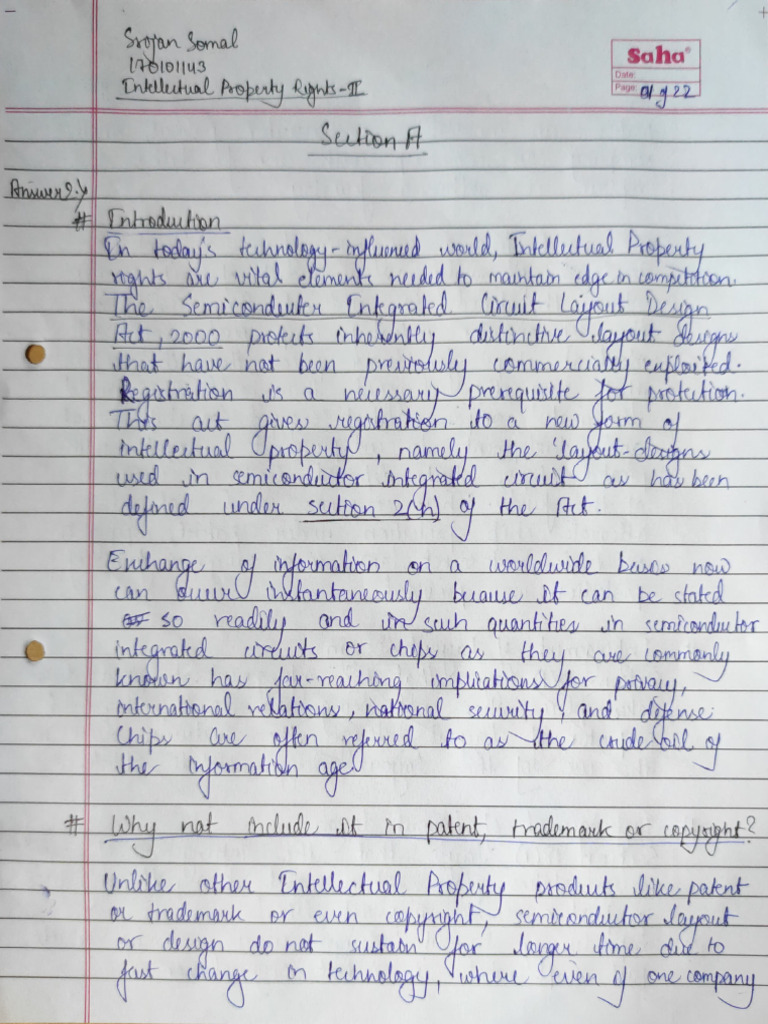 Srojan Somal
170101143
Intellectual Property Rights-II
Saha
Date:
Page: 01 of 22
Section A
Answer 2.)
# Introduction
In today's technology-influenced world, Intellectual Property
rights are vital elements needed to maintain edge in competition.
The Semiconductor Integrated Circuit Layout Design
Act, 2000 protects inherently distinctive layout designs
that have not been previously commercially exploited.
Registration is a necessary prerequisite for protection.
This act gives registration to a new form of
intellectual property, namely the 'layout-designs
used in semiconductor integrated circuit as has been
defined under section 2(h) of the Act.
Exchange of information on a worldwide basis now
can occur instantaneously because it can be stated
so readily and in such quantities in semiconductor
integrated circuits or chips as they are commonly
known has far-reaching implications for privacy,
international relations, national security, and defense.
Chips are often referred to as the crude oil of
the information age
# Why not include it in patent, trademark or copyright?
Unlike other Intellectual Property products like patent
or trademark or even copyright, semiconductor layout
or design do not sustain for longer time due to
fast change in technology, where even if one company